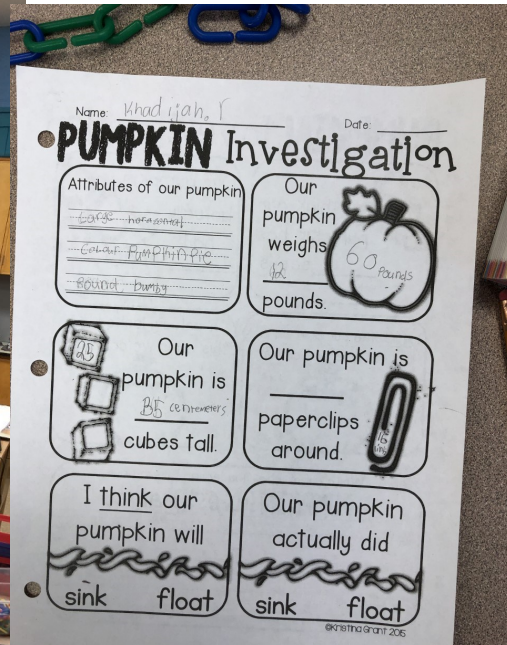 Name: Khadijah. r
Date:
PUMPKIN Investigation
Attributes of our pumpkin
Large horozontal
Colour PumPkinPie
Round bumby
Our
pumpkin
weighs
12
pounds.
60 Pounds
25
Our
pumpkin is
centemeters
cubes tall.
Our pumpkin is
paperclips
around.
I think our
pumpkin will
sink float
Our pumpkin
actually did
sink float
©Kristina Grant 2015